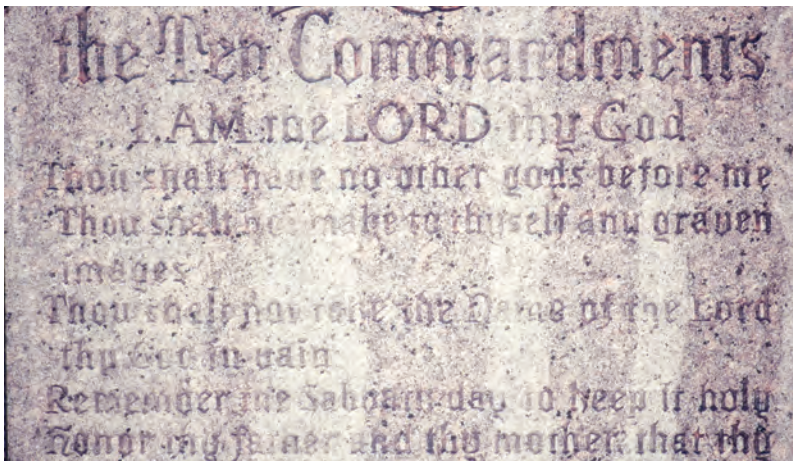 the Ten Commandments
I AM the LORD thy God
Thou shalt have no other gods before me
Thou shalt not make to thyself any graven
images
Thou shalt not take the Name of the Lord
thy God in vain
Remember the Sabbath day to keep it holy
Honor thy father and thy mother that thy